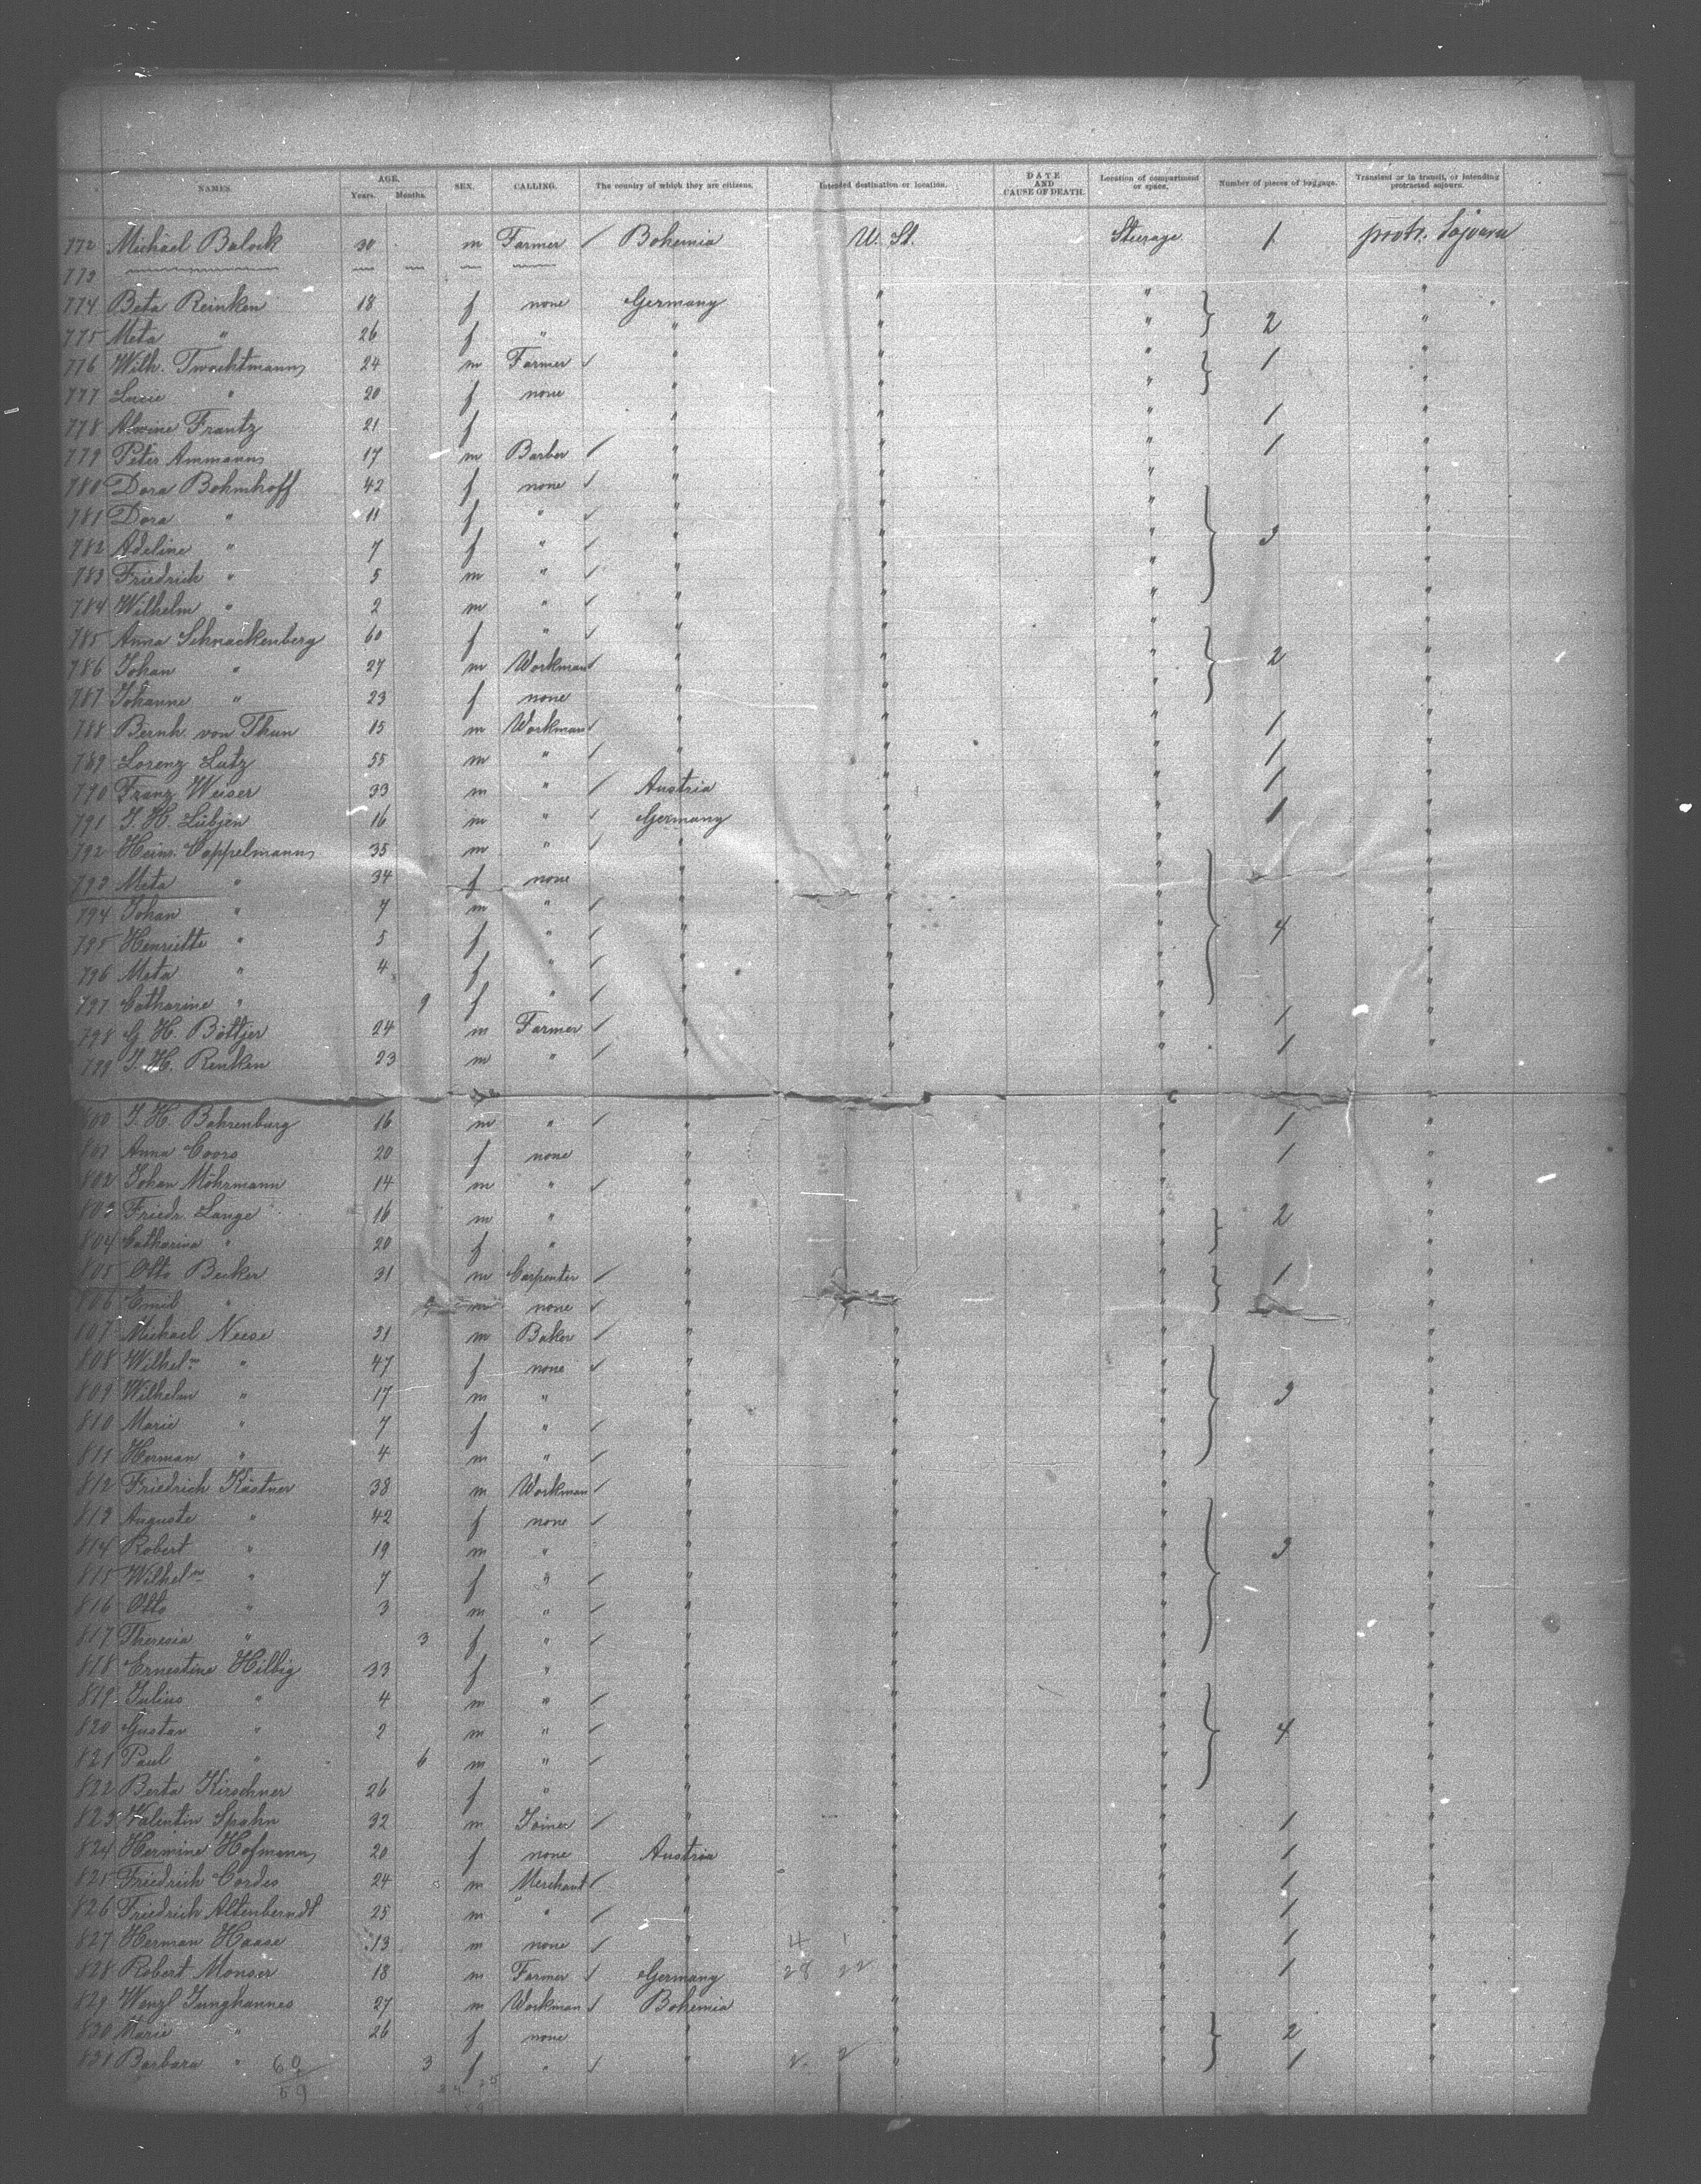 NAMES. AGE. Years. Months. SEX. CALLING. The country of which they are citizens. Intended destination or location. DATE AND CAUSE OF DEATH. Location of compartment or space. Number of pieces of baggage. Transient or in transit, or intending protracted sojourn.
772 Michael 30 m Farmer / Bohemia U. St. Steerage 1 protr. Sojourn
773
774 Beta Reinken 18 f none Germany " " "
775 Meta " 26 f " " " " 2 "
776 Wilh. Twachtmann 24 m Farmer / " " " 1 "
777 Lucie " 20 f none " " "
778 Alwine Frantz 21 f " " " 1 "
779 Peter Ammann 17 m Barber / " " " 1 "
780 Dora Bohmhoff 42 f none / " " " "
781 Dora " 11 f " / " " " "
782 Adeline " 7 f " / " " " 3 "
783 Friedrich " 5 m " / " " " "
784 Wilhelm " 2 m " / " " " "
785 Anna Schnackenberg 60 f " / " " " "
786 Johan " 27 m Workman / " " " 2 "
787 Johanne " 23 f none " " " "
788 Bernh. von Thun 15 m Workman / " " " 1 "
789 Lorenz Lutz 55 m " / " " " 1 "
790 Franz Weiser 33 m " / Austria " " 1 "
791 J. H. Lübjen 16 m " / Germany " " 1 "
792 Heinr. Coppelmann 35 m " / " " " "
793 Meta " 34 f none " " " "
794 Johan " 7 m " / " " " "
795 Henriette " 5 f " / " " " 4 "
796 Meta " 4 f " / " " " "
797 Catharine " 9 f " / " " " "
798 G. H. Böttjer 24 m Farmer / " " " 1 "
799 J. H. Renken 23 m " / " " " 1 "
800 J. H. Bohrenburg 16 m " / " " 1 "
801 Anna Coors 20 f none " " 1 "
802 Johan Möhrmann 14 m " / " " "
803 Friedr. Lange 16 m " " " 2 "
804 Catharina " 20 f " " " "
805 Otto Becker 31 m Carpenter / " " 1 "
806 Emil " m none / " "
807 Michael Neese 31 m Baker / " " " "
808 Wilhelm " 47 f none / " " " "
809 Wilhelm " 17 m " " " " 3 "
810 Marie " 7 f " / " " " "
811 Herman " 4 m " / " " " "
812 Friedrich Kästner 38 m Workman / " " " "
813 Auguste " 42 f none / " " " "
814 Robert " 19 m " " " " 3 "
815 Wilhelm " 7 f " / " " " "
816 Otto " 3 m " / " " " "
817 Theresia " 3 f " / " " " "
818 Ernestine Hilbig 33 f " " " " "
819 Julius " 4 m " / " " " "
820 Gustav " 2 m " / " " " 4 "
821 Paul " 6 m " / " " " "
822 Berta Kirschner 26 f " " " " "
823 Valentin Spahn 32 m Joiner / " " " 1 "
824 Hermine Hofmann 20 f none Austria " " 1 "
825 Friedrich Cordes 24 m Merchant / " " " 1 "
826 Friedrich Altenberndt 25 m " / " " " 1 "
827 Herman Haase 13 m none / " 4 1 " " 1 "
828 Robert Monser 18 m Farmer / Germany 28 22 " " 1 "
829 Wenzl Junghannes 27 m Workman / Bohemia " " "
830 Marie " 26 f none " " " 2 "
831 Barbara " 3 f " / " 2 2 " " 1 "
60
59